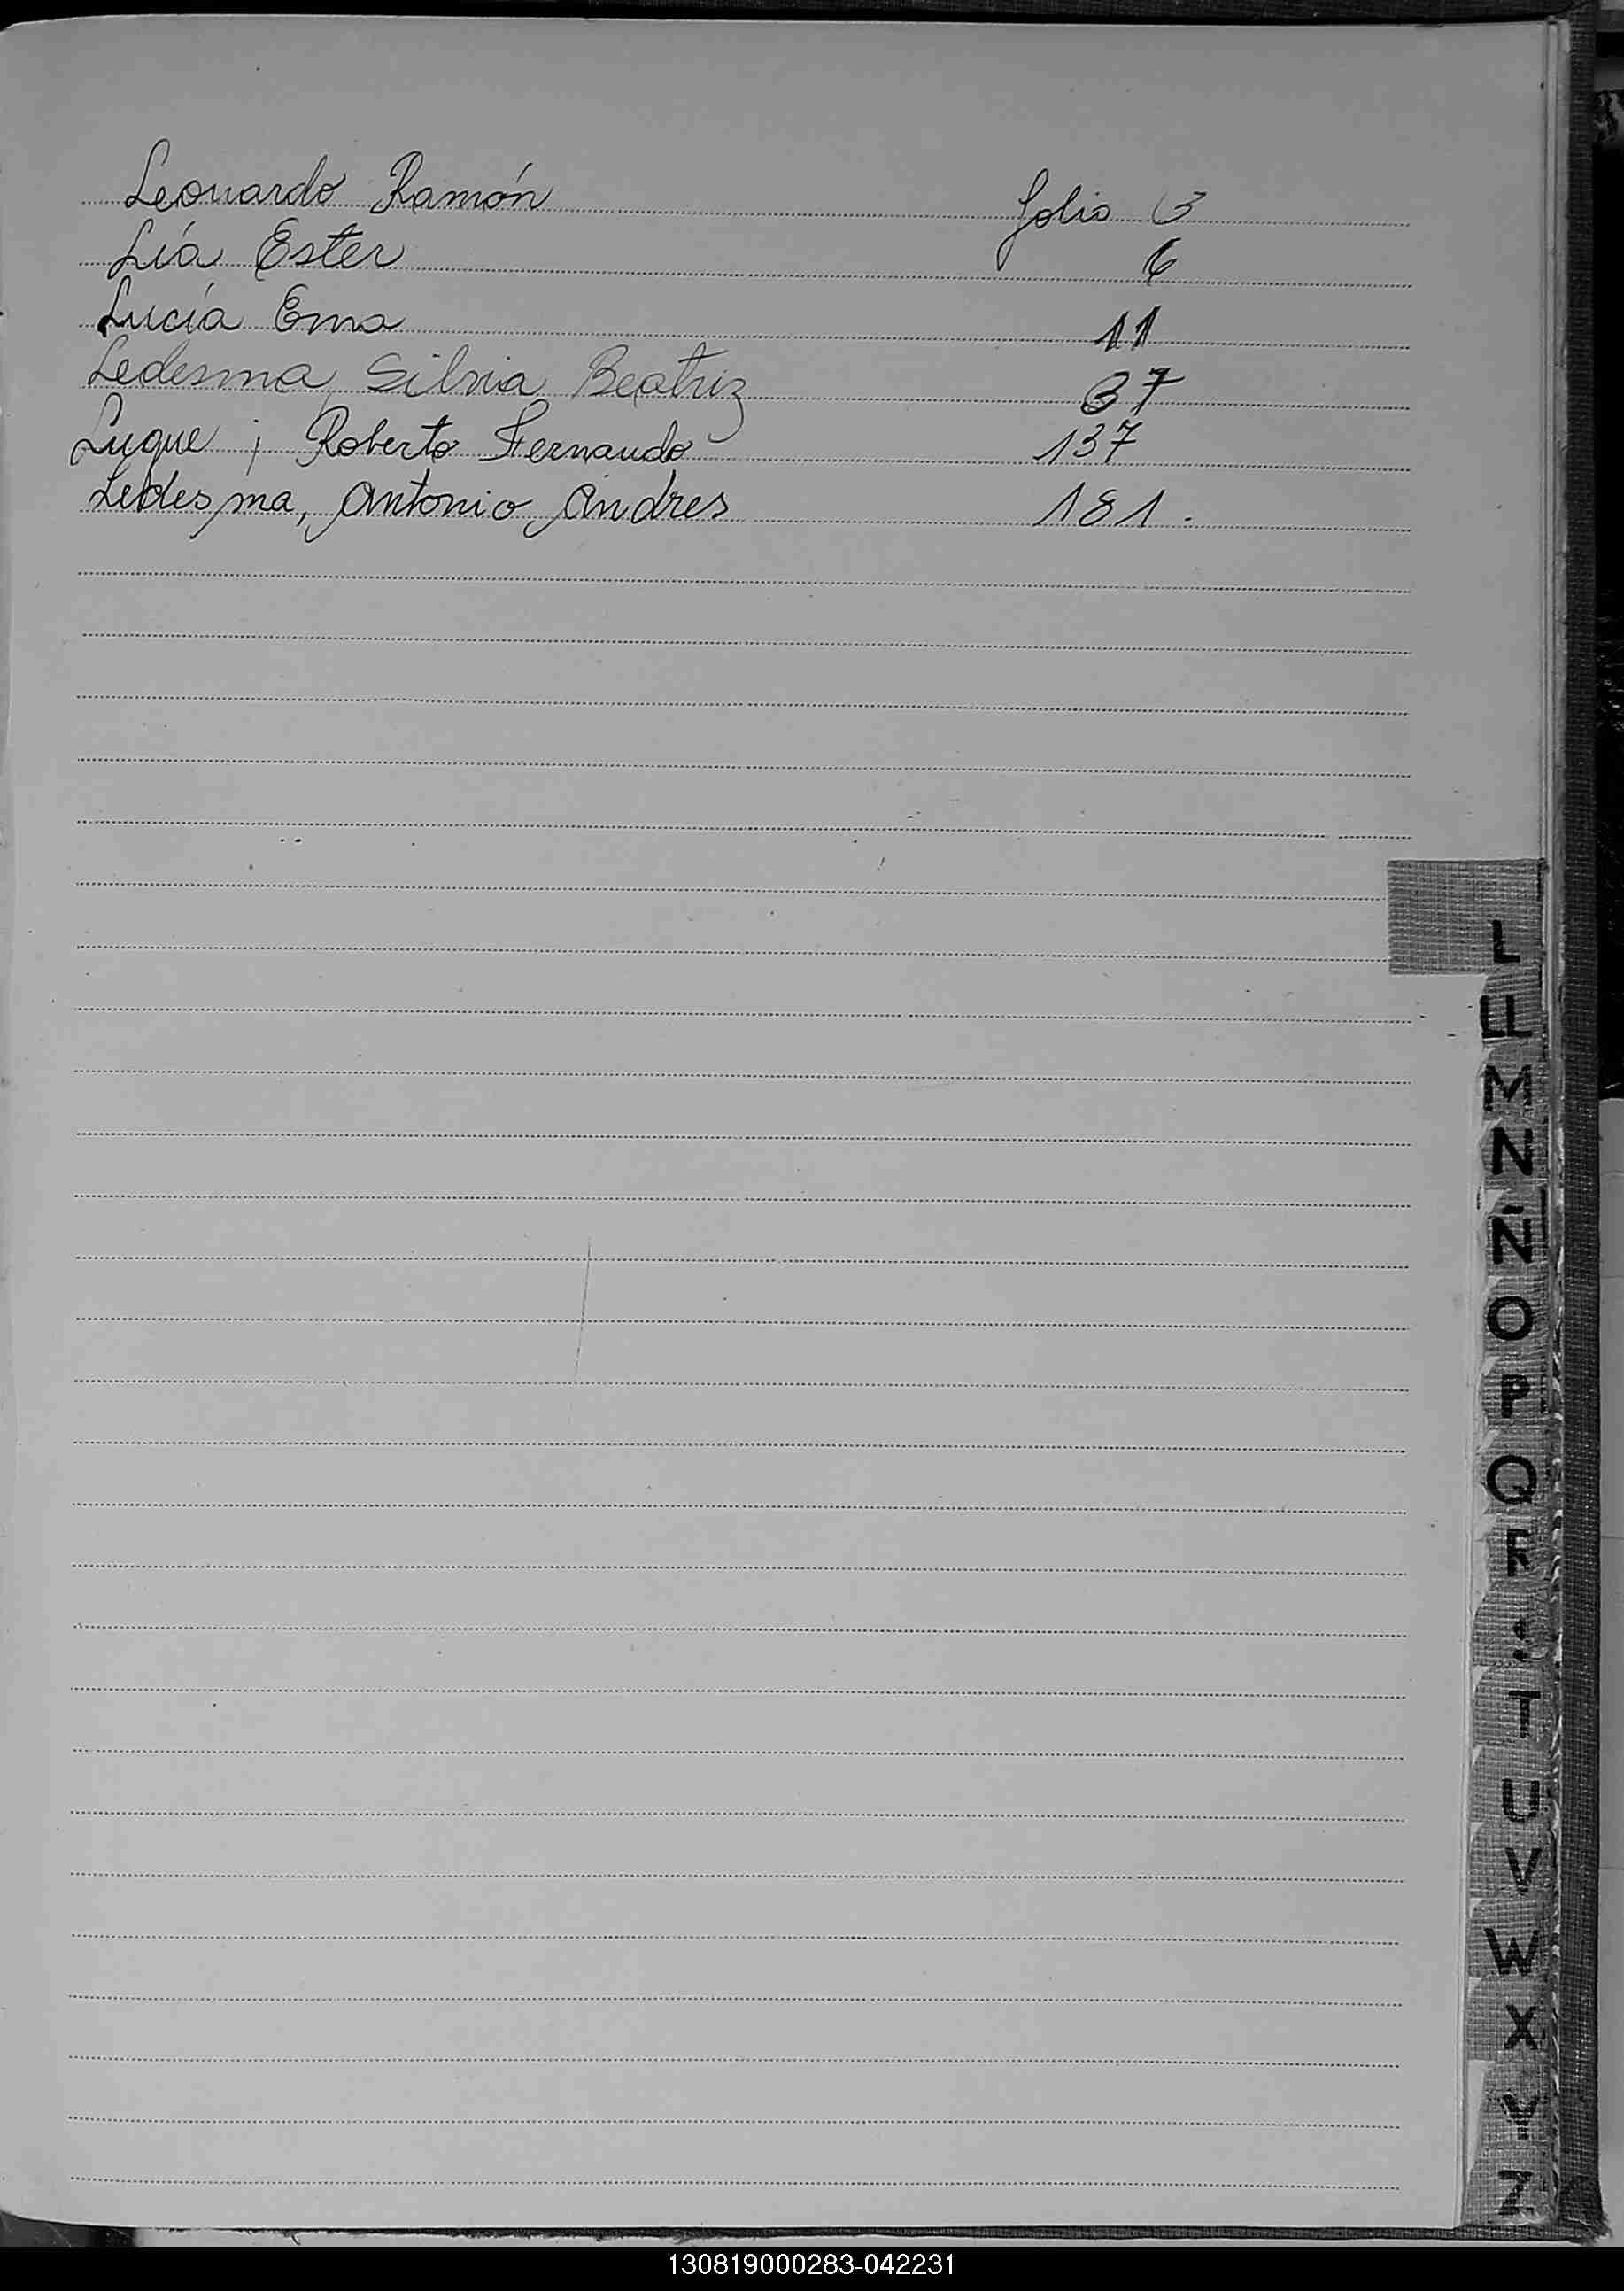 Leonardo Ramón folio 3
Lía Ester 6
Lucía Ema 11
Ledesma, Silvia Beatriz 37
Luque ; Roberto Fernando 137
Ledesma, Antonio Andres 181.
L
LL
M
N
Ñ
O
P
Q
R
T
U
V
W
X
Y
Z
130819000283-042231